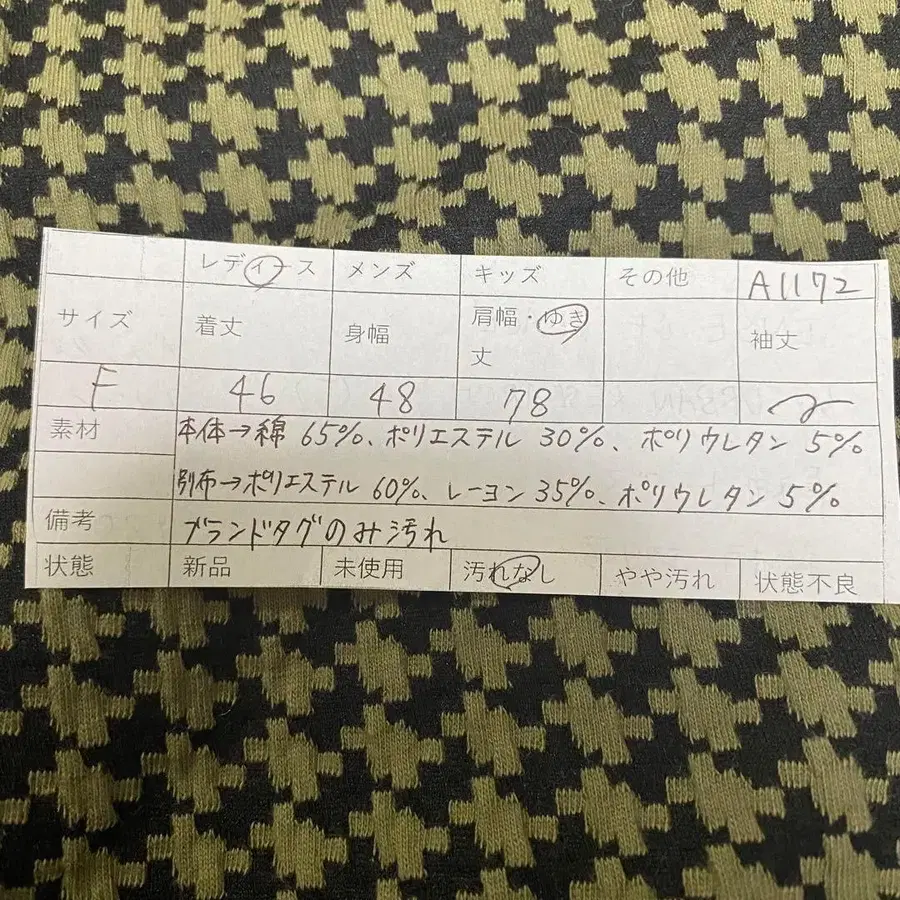 レディース メンズ キッズ その他 A1172
サイズ 着丈 身幅 肩幅・ゆき丈 袖丈
F 46 48 78
素材 本体→綿 65%、ポリエステル 30%、ポリウレタン 5%
別布→ポリエステル 60%、レーヨン 35%、ポリウレタン 5%
備考 ブランドタグのみ汚れ
状態 新品 未使用 汚れなし やや汚れ 状態不良